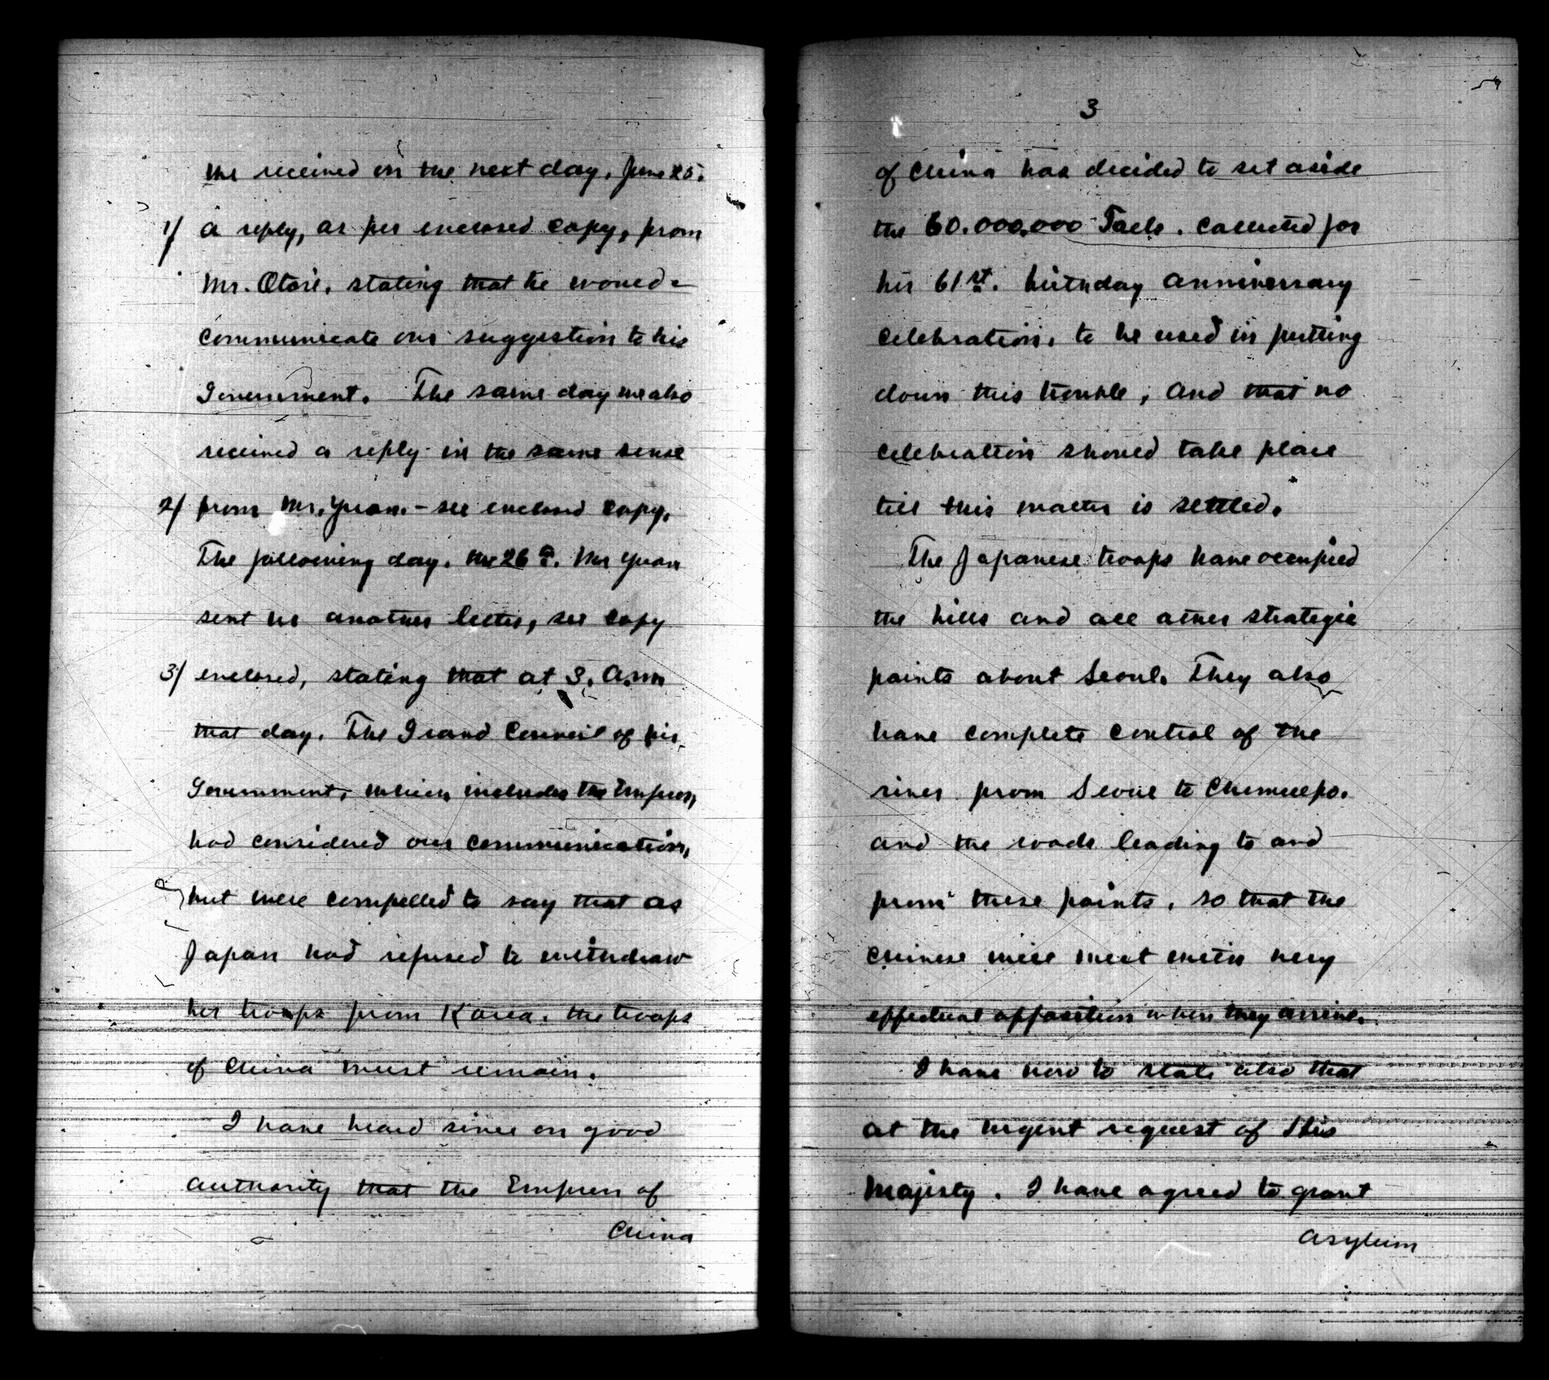 we received on the next day, June 25.
1/ a reply, as per enclosed copy, from
Mr. Otori, stating that he would
communicate our suggestion to his
Government. The same day we also
received a reply in the same sense
2/ from Mr. Yuan. - see enclosed copy.
The following day, the 26th. Mr Yuan
sent us another letter, see copy
3/ enclosed, stating that at 3. a.m.
that day. The Grand Council of his
Government, which includes the Empress,
had considered our communication,
but were compelled to say that as
Japan had refused to withdraw
her troops from Korea. the troops
of China must remain.
I have heard since on good
authority that the Empress of
China
3
of China has decided to set aside
the 60.000,000 Taels. collected for
her 61st. birthday anniversary
celebration, to be used in putting
down this trouble, and that no
celebration should take place
till this matter is settled.
The Japanese troops have occupied
the hills and all other strategic
points about Seoul. They also
have complete control of the
river from Seoul to Chemulpo.
and the roads leading to and
from these points, so that the
Chinese will meet with very
effectual opposition when they arrive.
I have now to state also that
at the urgent request of His
Majesty. I have agreed to grant
asylum